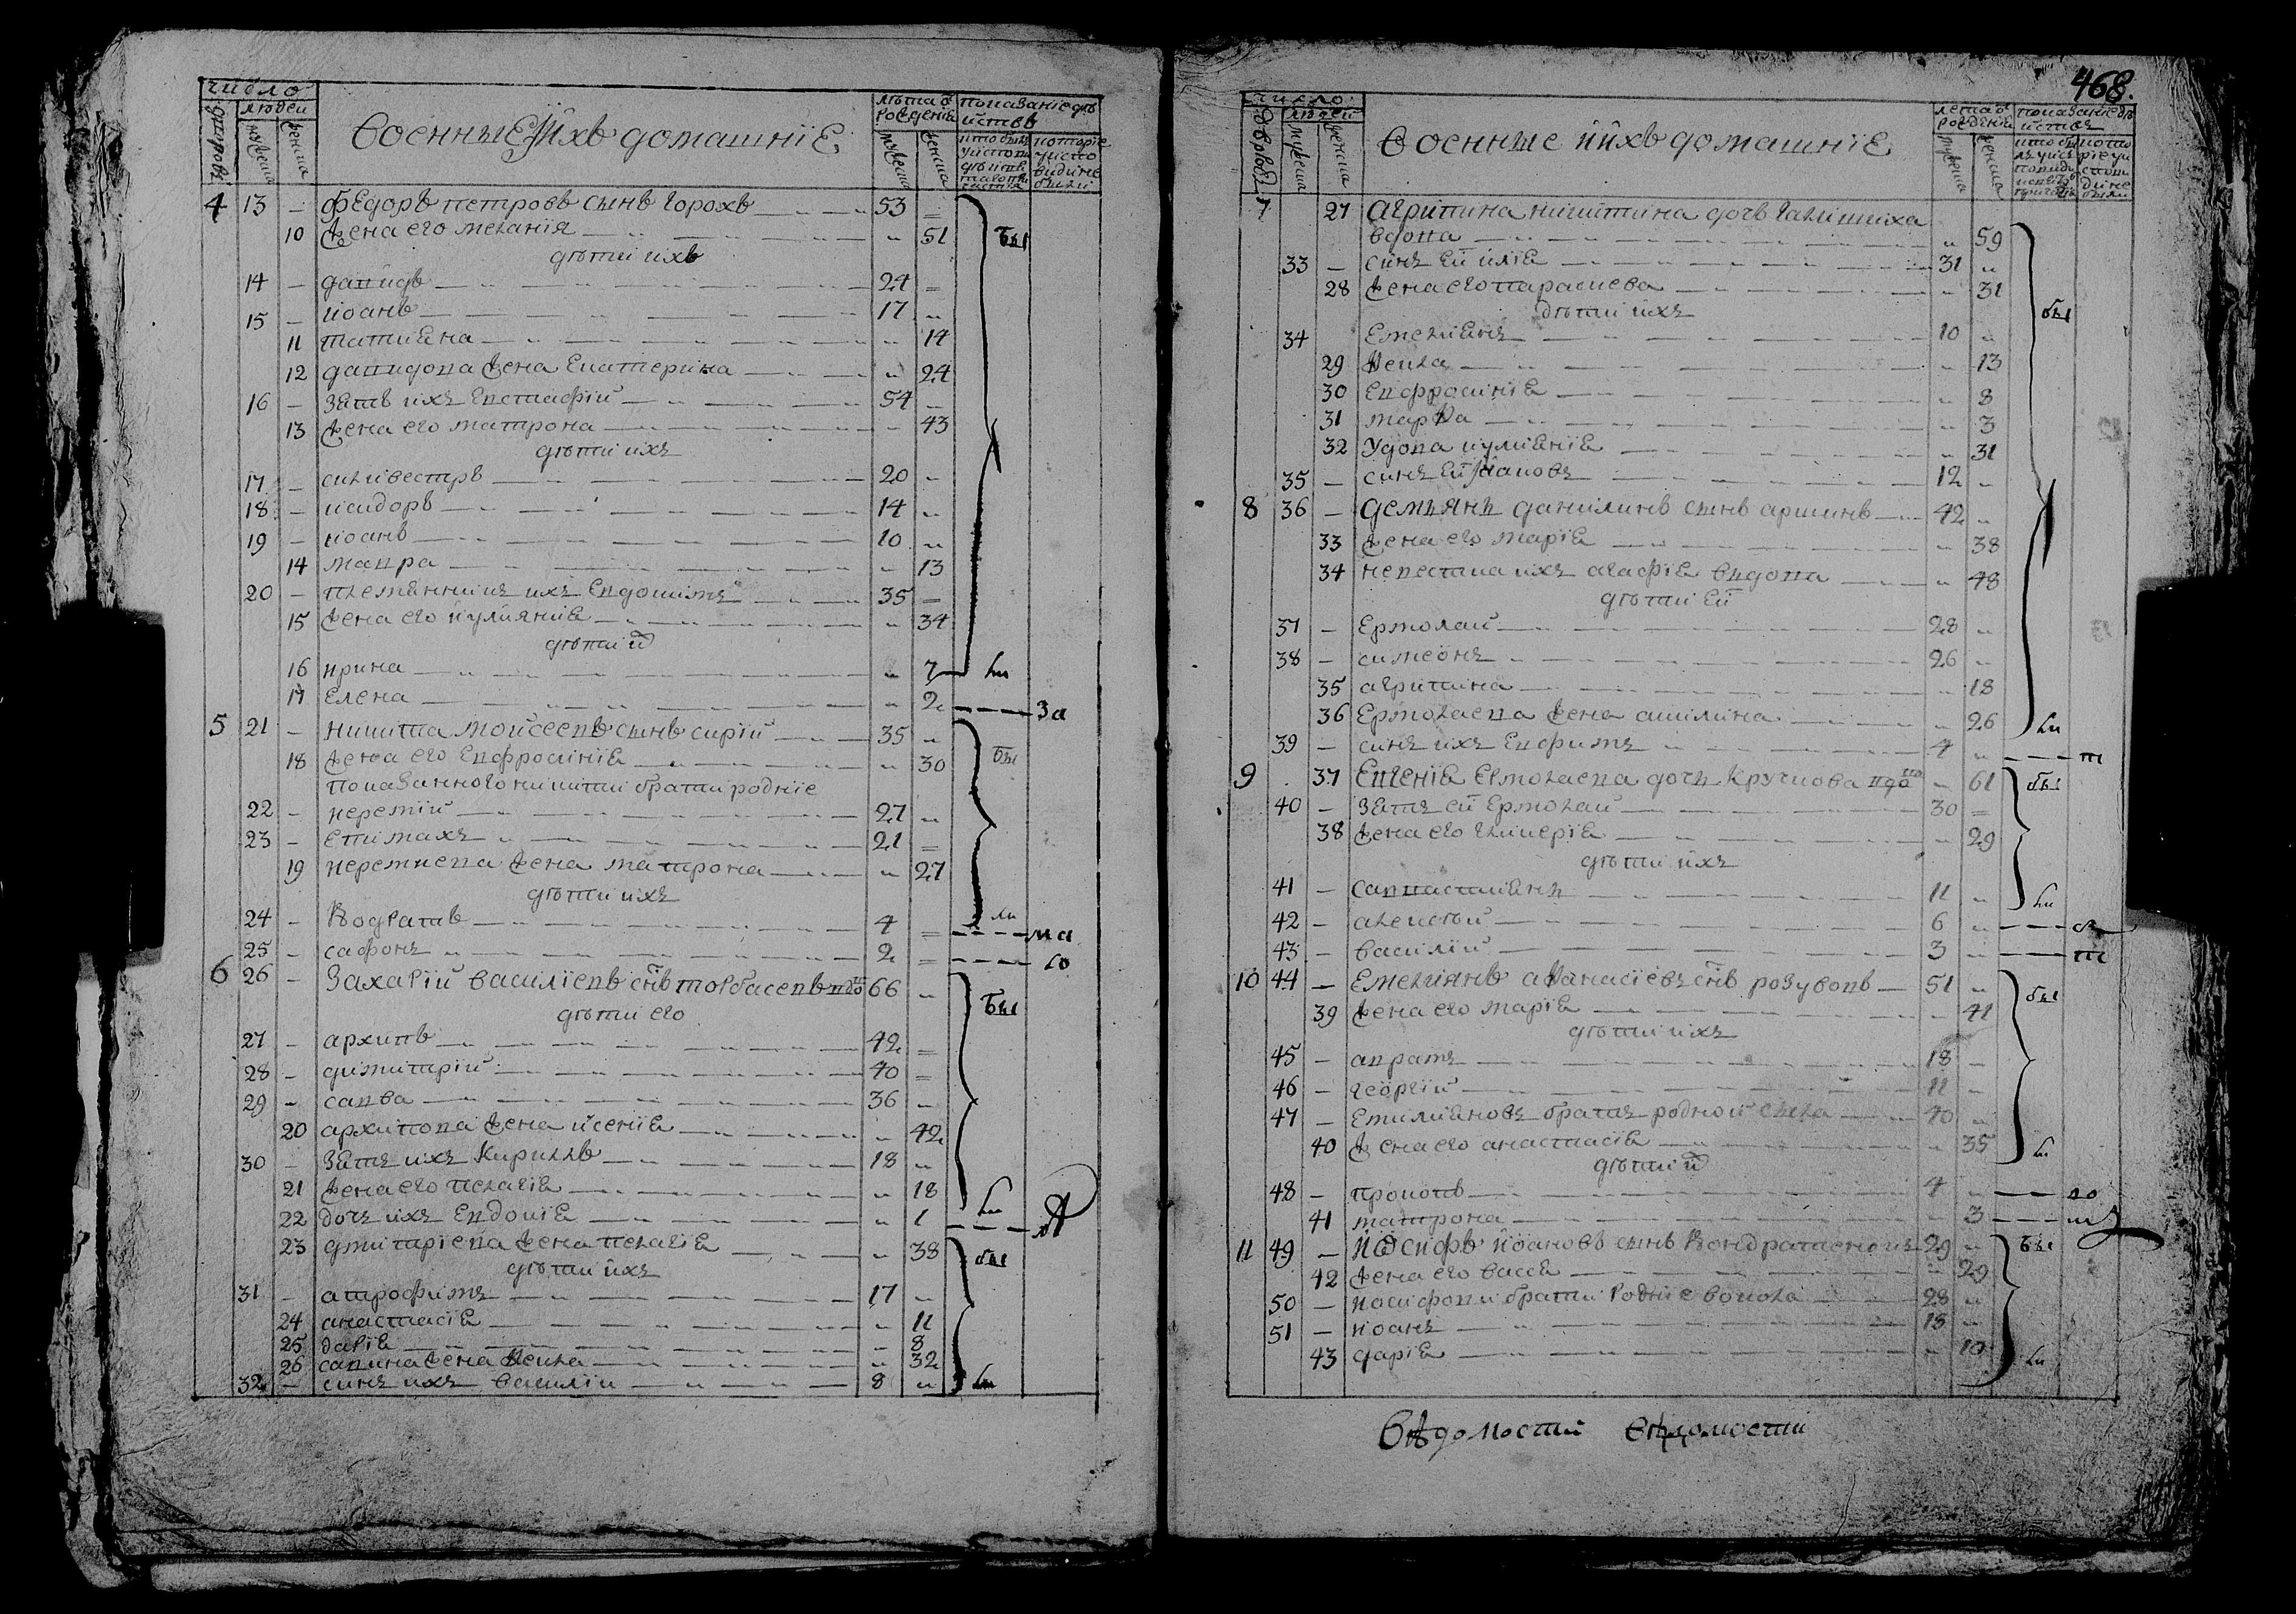 число
людей
дворовъ
мужеска
женска
военные и ихъ домашніе
лѣта ѿ рожденія
мужеска
женска
показаніе дѣйствъ
4 13 – федоръ петровъ сынъ горохъ 53
10 жена его меланія 51 бы
дѣти ихъ
14 – давидъ 24
15 – иоанъ 17
11 татиѧна 14
12 давидова жена екатерина 24
16 – зѧть ихъ евстафій 54
13 жена его матрона 43
дѣти ихъ
17 – силивестръ 20
18 – исидоръ 14
19 – иоанъ 10
14 мавра 13
20 – племѧнникъ ихъ евдокимъ 35
15 жена его иулиянїѧ 34
дѣти их
16 ирина 7 ли
17 елена 2 за
5 21 – никита моисеевъ сынъ сирій 35
18 жена его евфросинїѧ 30 бы
показанного никити брати родніе
22 – иеремій 27
23 – епимахъ 21
19 иеремиева жена матрона 27
дѣти ихъ
24 – кодратъ 4 ли ма
25 – сафонъ 2 ло
6 26 – захарій василіевъ снъ торбасевъ вдо 66 бы
дѣти его
27 – архипъ 42
28 – димитрій 40
29 – савва 36
20 архипова жена ѯенїѧ 42
30 – зѧть ихъ кирилъ 18
21 жена его пелагїѧ 18
22 дочъ ихъ евдокїѧ 1 ли
23 дмитріева жена пелагїѧ 38 бы
дѣти ихъ
31 – атрофимъ 17
24 анастасїѧ 11
25 дарїѧ 8
26 савина жена ѳекла 32
32 – синъ ихъ василіи 8 ли
468.
число
людей
дворовъ
мужеска
женска
военные и ихъ домашніе
лета ѿ рожденія
мужеска
женска
показаніе дѣйствъ
7 27 агрипина никитина дочъ галишиха
вдова 59
33 – синъ ей илїѧ 31
28 жена его параскева 31 бы
дѣти ихъ
34 емелиѧнъ 10
29 ѳекла 13
30 евфросинїѧ 8
31 марѳа 3
32 удова иулиѧнїѧ 31
35 – синъ ей иаковъ 12
8 36 – демъянъ данилинъ сынъ аршинъ 42
33 жена его марїѧ 38
34 невестка ихъ агафїѧ вдова 48
дѣти ей
37 – ермолай 28
38 – симеонъ 26
35 агрипина 18
36 ермолаева жена акилина 26 ли
39 – синъ ихъ евфимъ 4 т
9 37 евгенїѧ ермолаева дочъ кручкова вдо 61 бы
40 – зѧть ей ермолай 30
38 жена его гликерїѧ 29
дѣти ихъ
41 – савастиѧнъ 11 ли
42 – алексѣй 6
43 – василій 3
10 44 – емелиянъ аѳанасіевъ снъ розувовъ 51 бы
39 жена его марїѧ 41
дѣти ихъ
45 – аврамъ 18
46 – георгій 11
47 – емилиѧновъ братъ родной сыла 40
40 жена его анастасїѧ 35 ли
дѣти их
48 – прокопъ 4
41 матрона 3
11 49 – иосифъ иоановъ сынъ кондратенокъ 29 бы
42 жена его васса 29
50 – иосифови брати родніе вокола 28
51 – иоанъ 18
43 дарїѧ 10 ли
вѣдомости вѣдомости